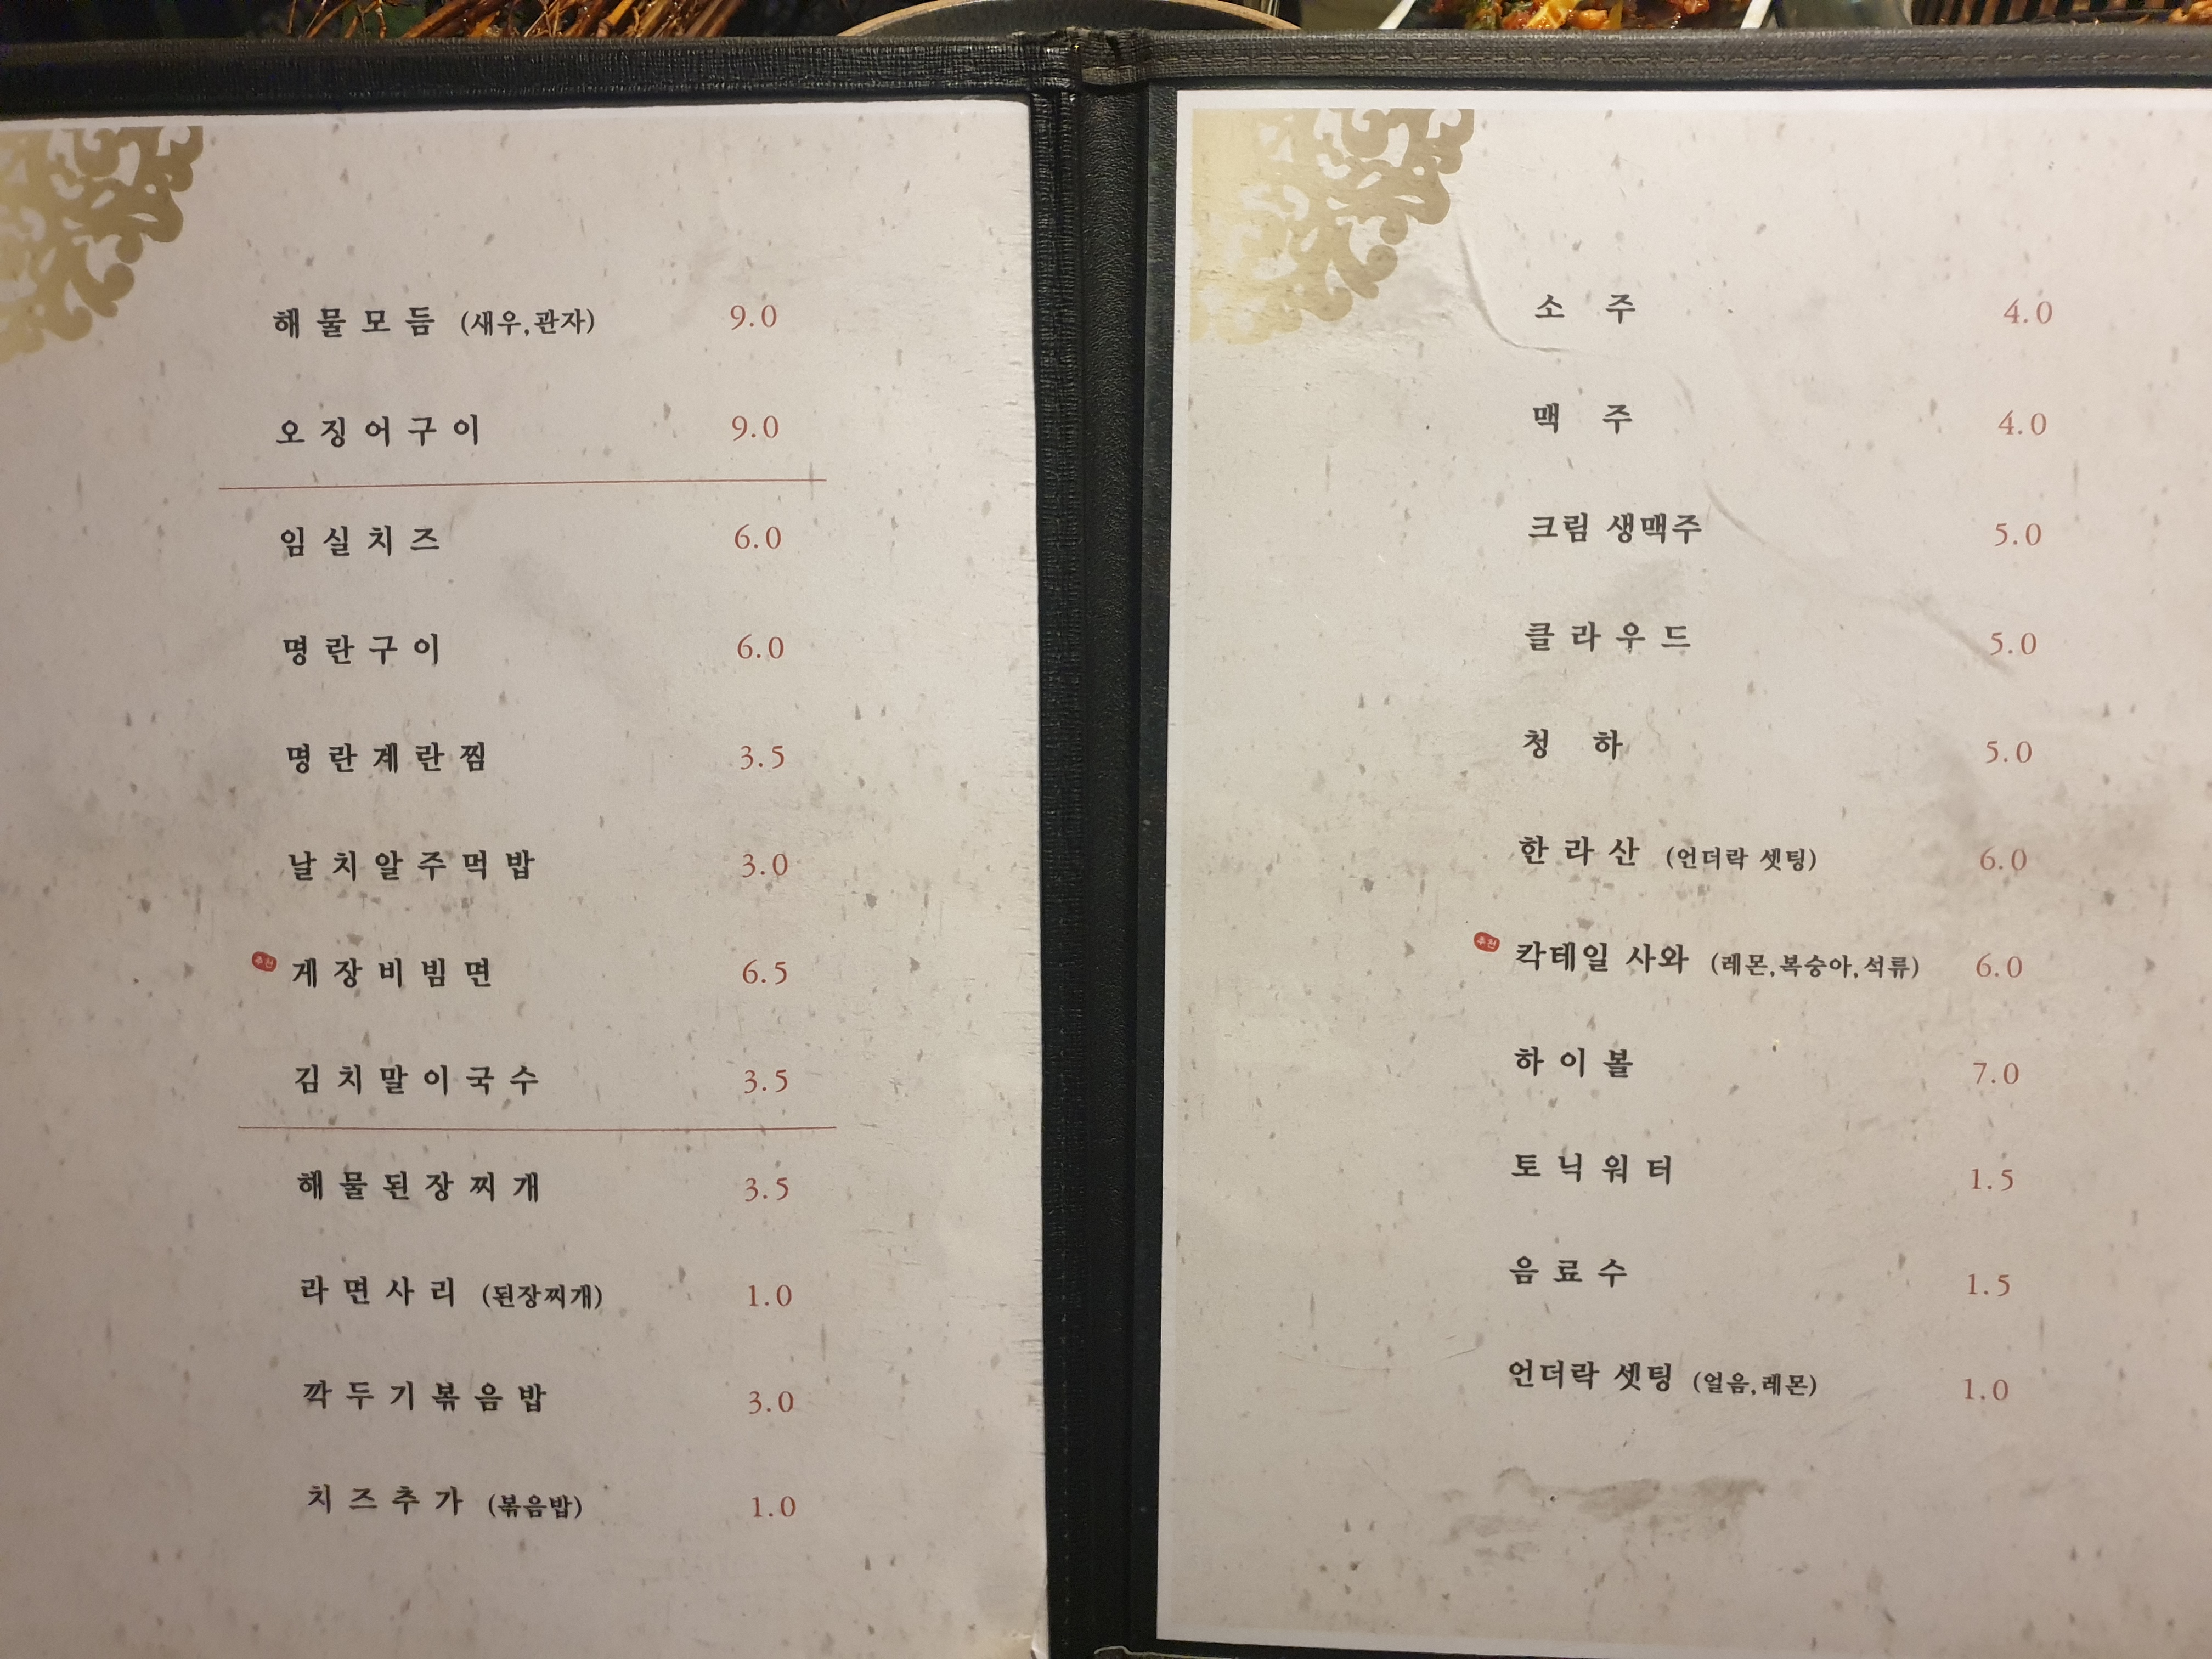 해물모듬 (새우,관자) 9.0
오징어구이 9.0
임실치즈 6.0
명란구이 6.0
명란계란찜 3.5
날치알주먹밥 3.0
추천 게장비빔면 6.5
김치말이국수 3.5
해물된장찌개 3.5
라면사리 (된장찌개) 1.0
깍두기볶음밥 3.0
치즈추가 (볶음밥) 1.0
소 주 4.0
맥 주 4.0
크림 생맥주 5.0
클라우드 5.0
청 하 5.0
한라산 (언더락 셋팅) 6.0
추천 칵테일 사와 (레몬,복숭아,석류) 6.0
하이볼 7.0
토닉워터 1.5
음료수 1.5
언더락 셋팅 (얼음,레몬) 1.0